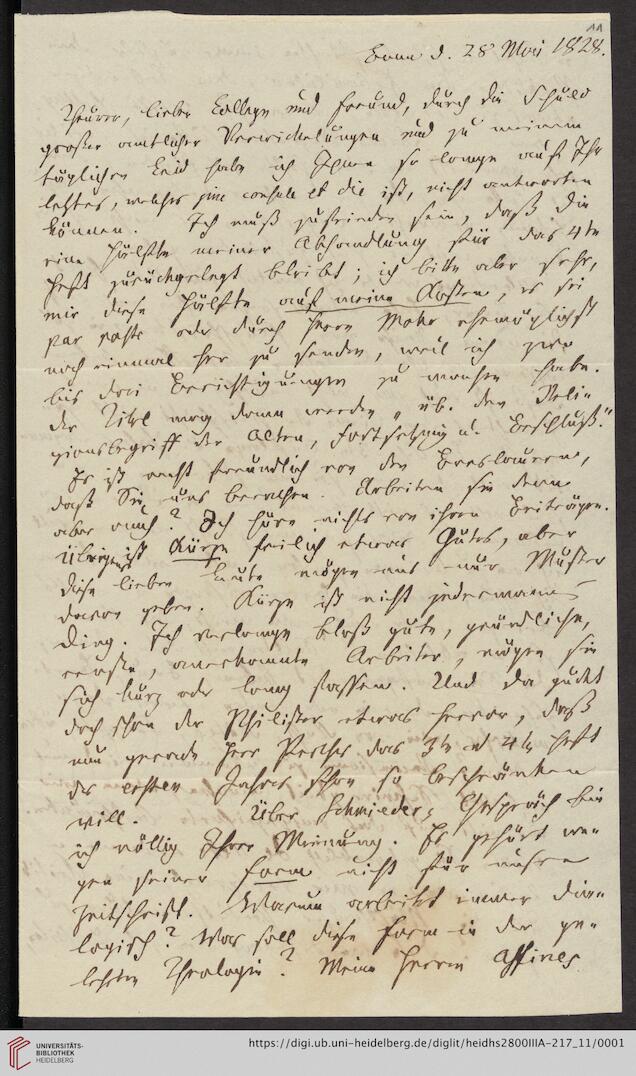 11
Bonn d. 28 Mai 1828.
Theurer, lieber College und Freund, durch die Schuld
großer amtlicher Verwickelungen und zu meinem
täglichen Leid habe ich Ihnen so lange auf Ihr
letztes, welches sine consule et die ist, nicht antworten
können. Ich muß zufrieden sein, daß die
eine Hälfte meiner Abhandlung für das 4te
Heft zurückgelegt bleibt; ich bitte aber sehr,
mir diese Hälfte auf meine Kosten, es sei
par poste oder durch Herrn Mohr ehemöglichst
noch einmal her zu senden, weil ich zwei
bis drei Berichtigungen zu machen habe.
Der Titel mag dann werden „üb. den Reli-
gionsbegriff der Alten, Fortsetzung u. Beschluß."
Es ist recht freundlich von den Breslauern,
daß Sie uns Arbeiten sie denn
aber auch? Ich höre nichts von ihren Beiträgen.
Übrigens ist Kürze freilich etwas Gutes, aber
diese lieben Leute mögen uns nur Muster
davon geben. Kürze ist nicht jedermanns
Ding. Ich verlange bloß gute, gründliche,
anerkannte Arbeiter, mögen sie
sich kurz oder lang fassen. Und da guckt
doch schon der Philister etwas hervor, daß
nun gerade Herr Perthes das 3te und 4te Heft
des ersten Jahres schon so beschränken
will. Über Schmieders Gespräch bin
ich völlig Ihrer Meinung. Es gehört we-
gen seiner Form nicht für unsre
Zeitschrift. Warum arbeitet immer dia-
logisch? Was soll diese Form in der ge-
lehrten Theologie? Meine Herrn Affines
UNIVERSITÄTS-
BIBLIOTHEK
HEIDELBERG
https://digi.ub.uni-heidelberg.de/diglit/heidhs2800IIIA-217_11/0001